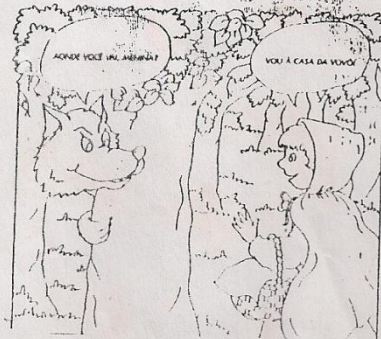 AONDE VOCÊ VAI, MENINA?
VOU À CASA DA VOVÓ!